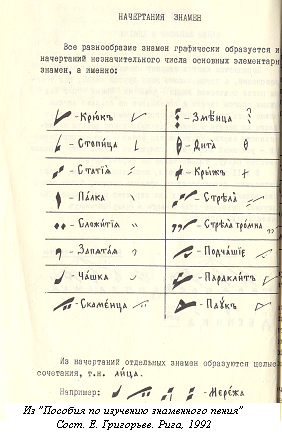 НАЧЕРТАНИЯ ЗНАМЕН
Все разнообразие знамен графически образуется и
начертаний незначительного числа основных элементарн
знамен, а именно:
- Крюкъ
- Змѣица
- Стопица
- Дита
- Статїѧ
- Крыж
- Палка
- Стрѣла
- Сложитїѧ
- Стрѣла громна
- Запѧтаѧ
- Подчашїе
- Чашка
- Параклитъ
- Скамеица
- Паукъ
Из начертаний отдельных знамен образуются целые
сочетания, т.н. лица.
Например: - Мережа
Из "Пособия по изучению знаменного пения"
Сост. Е. Григорьев. Рига, 1992